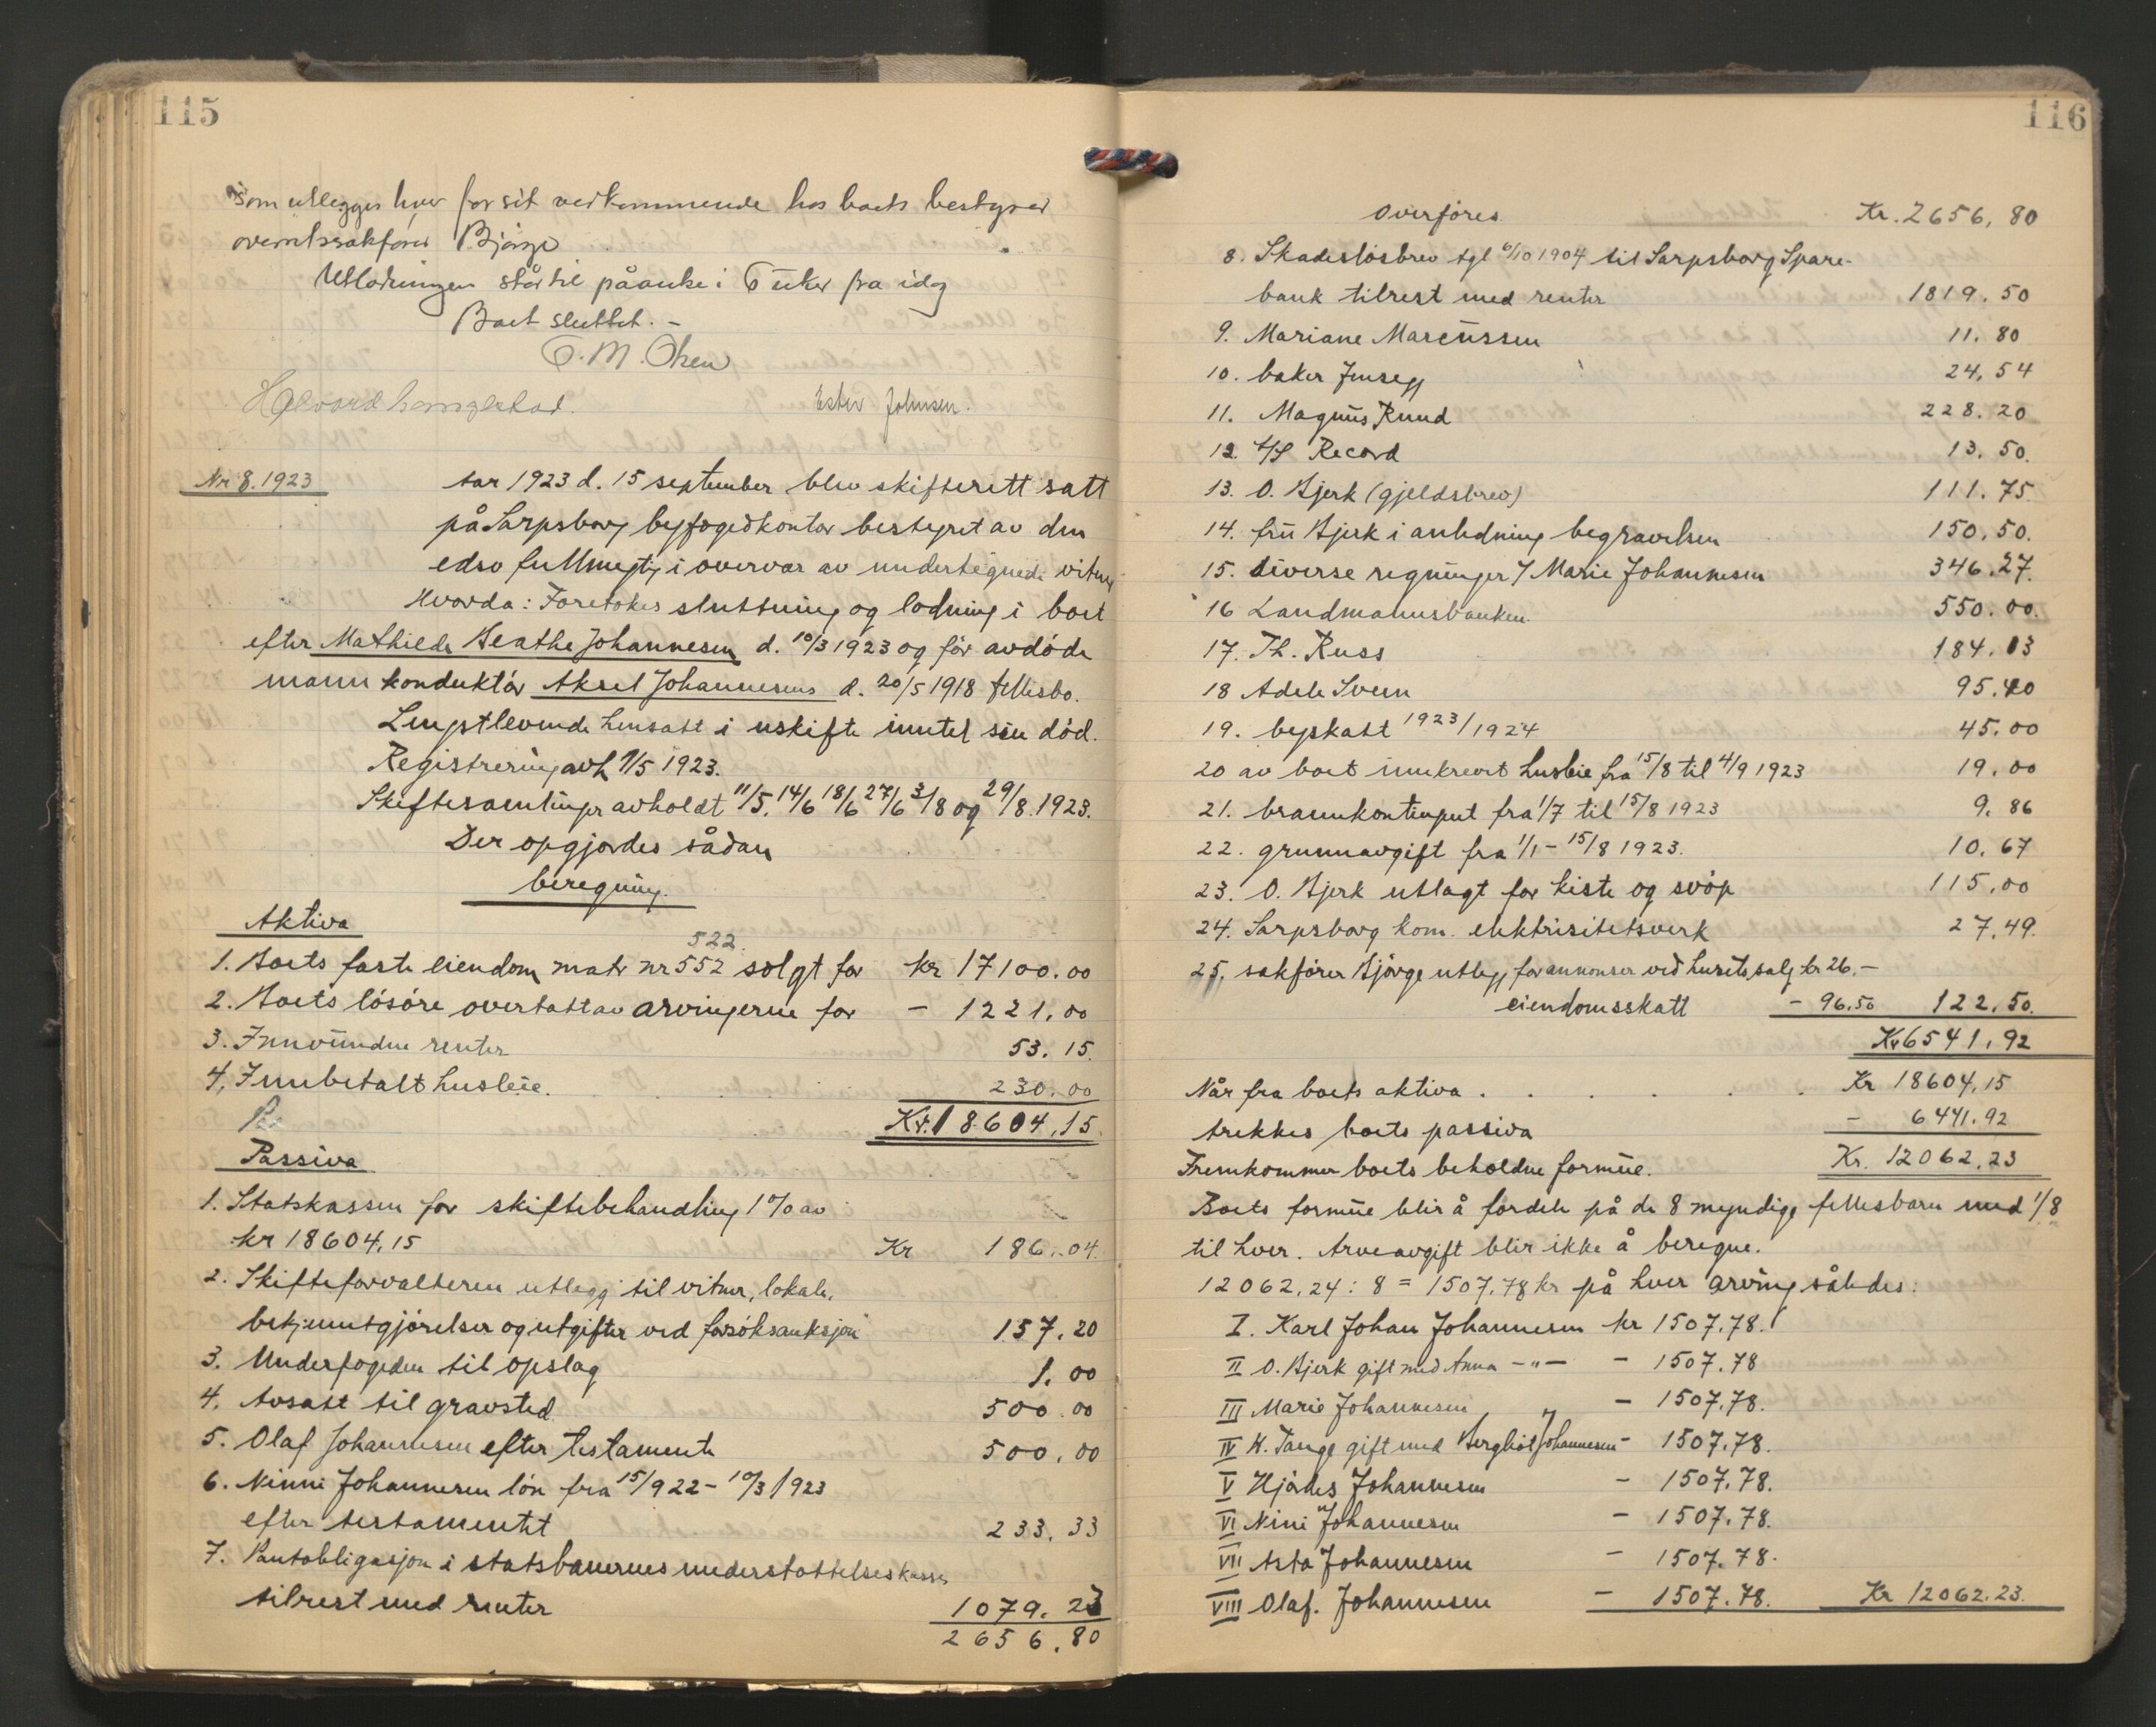 115
som utlegges hver for sit vedkommende hos boets bestyrer
overrettssakfører Bjørge
Utlodningen står til påanke i 6 uker fra idag
Boet sluttet. –
O. M. Olsen
Ester Johnsen.
Nr 8. 1923
Aar 1923 d. 15 september blev skifterett satt
på Sarpsborg byfogedkontor bestyret av den
edsv fullmegtig i overvær av undertegnede vitner
Hvorda: Foretokes sluttning og lodning i boet
efter Mathilde Beathe Johannesen d. 10/3 1923 og før avdøde
mann konduktør Aksel Johannesens d. 20/5 1918 fellesbo.
Lengstlevende hensatt i uskifte inntil sin død.
Registrering avh 7/5 1923.
Skiftesamlinger avholdt 11/5. 14/6 18/6 27/6 3/8 og 29/8. 1923.
Der opgjordes sådan
beregning.
Aktiva
522.
1. Boets faste eiendom matr nr 552 solgt for kr 17100.00
2. Boets løsøre overtatt av arvingerne for – 1221.00
3. Innvundne renter 53. 15.
4. Innbetalt husleie. 230.00
Kr. 18604,15.
Passiva
1. Statskassen for skiftebehandling 1% av
kr 18604,15 Kr 186.04.
2. Skifteforvalteren utlegg til vitner, lokale,
bekjentgjørelser og utgifter ved forsøksauksjon 157.20
3. Underfogeden til opslag 1.00
4. Avsatt til gravsted 500.00
5. Olaf Johannesen efter testamente 500.00
6. Ninni Johannesen løn fra 15/9 22 – 10/3 1923
efter testamentet 233.33
7. Pantobligasjon i statsbanernes understøttelseskasse
tilrest med renter 1079.23
2656.80
116
Overføres Kr. 2656,80
8. Skadesløsbrev tgl 6/10 1904 til Sarpsborg Spare-
bank tilrest med renter 1819.50
9. Mariane Marcussen 11.80
10. baker Jensegg 24,54
11. Magnus Ruud 228.20
12. A/S Record 13.50.
13. O. Bjerk (gjeldsbrev) 111.75.
14. fru Bjerk i anledning begravelsen 150.50.
15. diverse regninger / Marie Johannesen 346.27.
16 Landmannsbanken. 550.00.
17. Th. Russ 184.03
18 Adele Sveen 95.40
19. byskatt 1923/1924 45.00
20 av boet innkrevet husleie fra 15/8 til 4/9 1923 19.00
21. brannkontingent fra 1/7 til 15/8 1923 9.86
22. grunnavgift fra 1/1 – 15/8 1923. 10.67
23. O. Bjerk utlagt for kiste og svøp 115.00
24. Sarpsborg kom. elektrisitetsverk 27.49.
25, sakfører Bjørge utlegg for annonser ved husets salg kr 26.–
eiendomsskatt – 96.50 122.50.
Kr 6541,92
Når fra boets aktiva . . . . . . Kr 18604,15
trekkes boets passiva – 6441.92
Fremkommer boets beholdne formue. Kr. 12062,23
Boets formue blir å fordele på de 8 myndige fellesbarn med 1/8
til hver. Arveavgift blir ikke å beregne.
12062,24 : 8 = 1507,78 kr på hver arving således:
I. Karl Johan Johannesen kr 1507,78.
II O. Bjerk gift med Anna –"– – 1507.78
III Marie Johannesen – 1507,78.
IV K. Tange gift med Bergliot Johannesen – 1507,78.
V Hjørdes Johannesen – 1507,78.
VI Nini Johannesen – 1507,78.
VII Asta Johannesen – 1507.78.
VIII Olaf. Johannesen – 1507.78. Kr 12062.23.